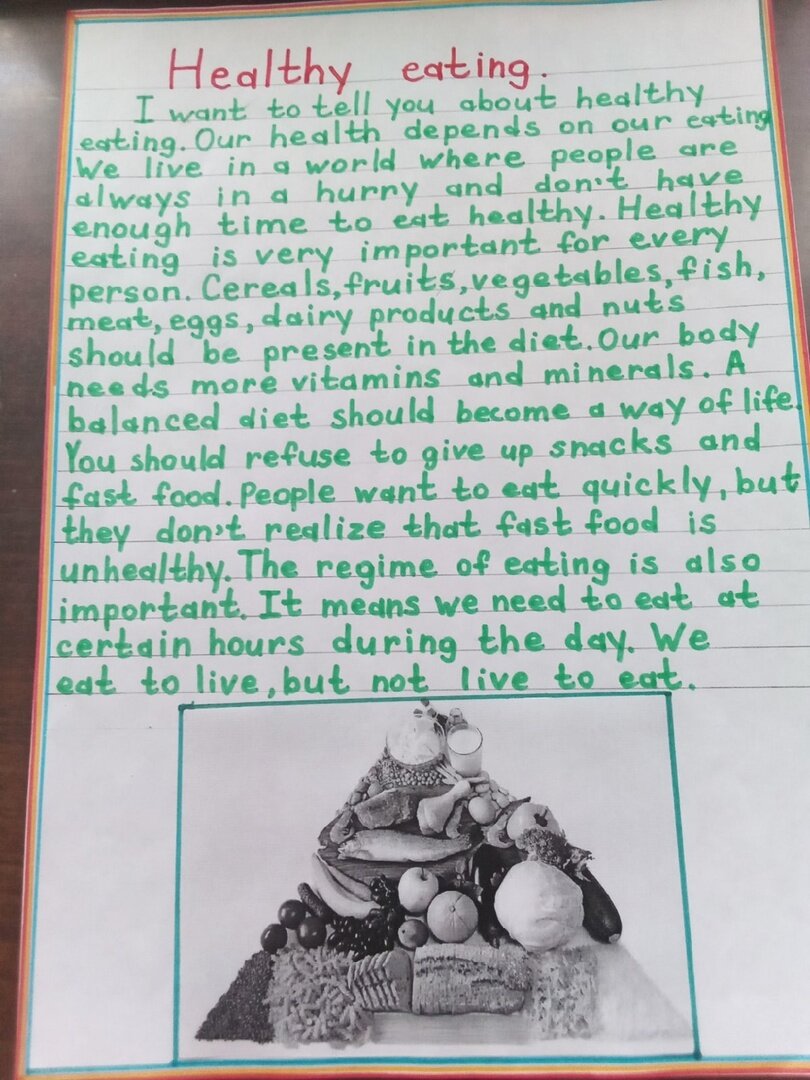 Healthy eating.
I want to tell you about healthy
eating. Our health depends on our eating
We live in a world where people are
always in a hurry and don't have
enough time to eat healthy. Healthy
eating is very important for every
person. Cereals, fruits, vegetables, fish,
meat, eggs, dairy products and nuts
should be present in the diet. Our body
needs more vitamins and minerals. A
balanced diet should become a way of life.
You should refuse to give up snacks and
fast food. People want to eat quickly, but
they don't realize that fast food is
unhealthy. The regime of eating is also
important. It means we need to eat at
certain hours during the day. We
eat to live, but not live to eat.